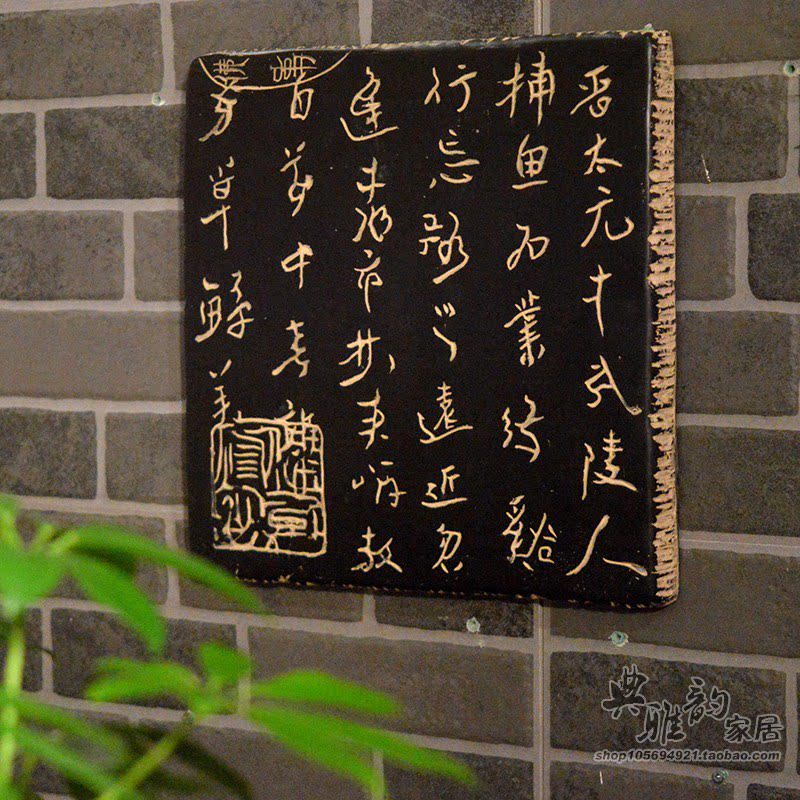 晋太元中武陵人
捕鱼为業缘谿
行忘路之遠近忽
逢桃花林夹岸数
百步中无杂
芳草鲜美
典雅韵家居
shop105694921.taobao.com